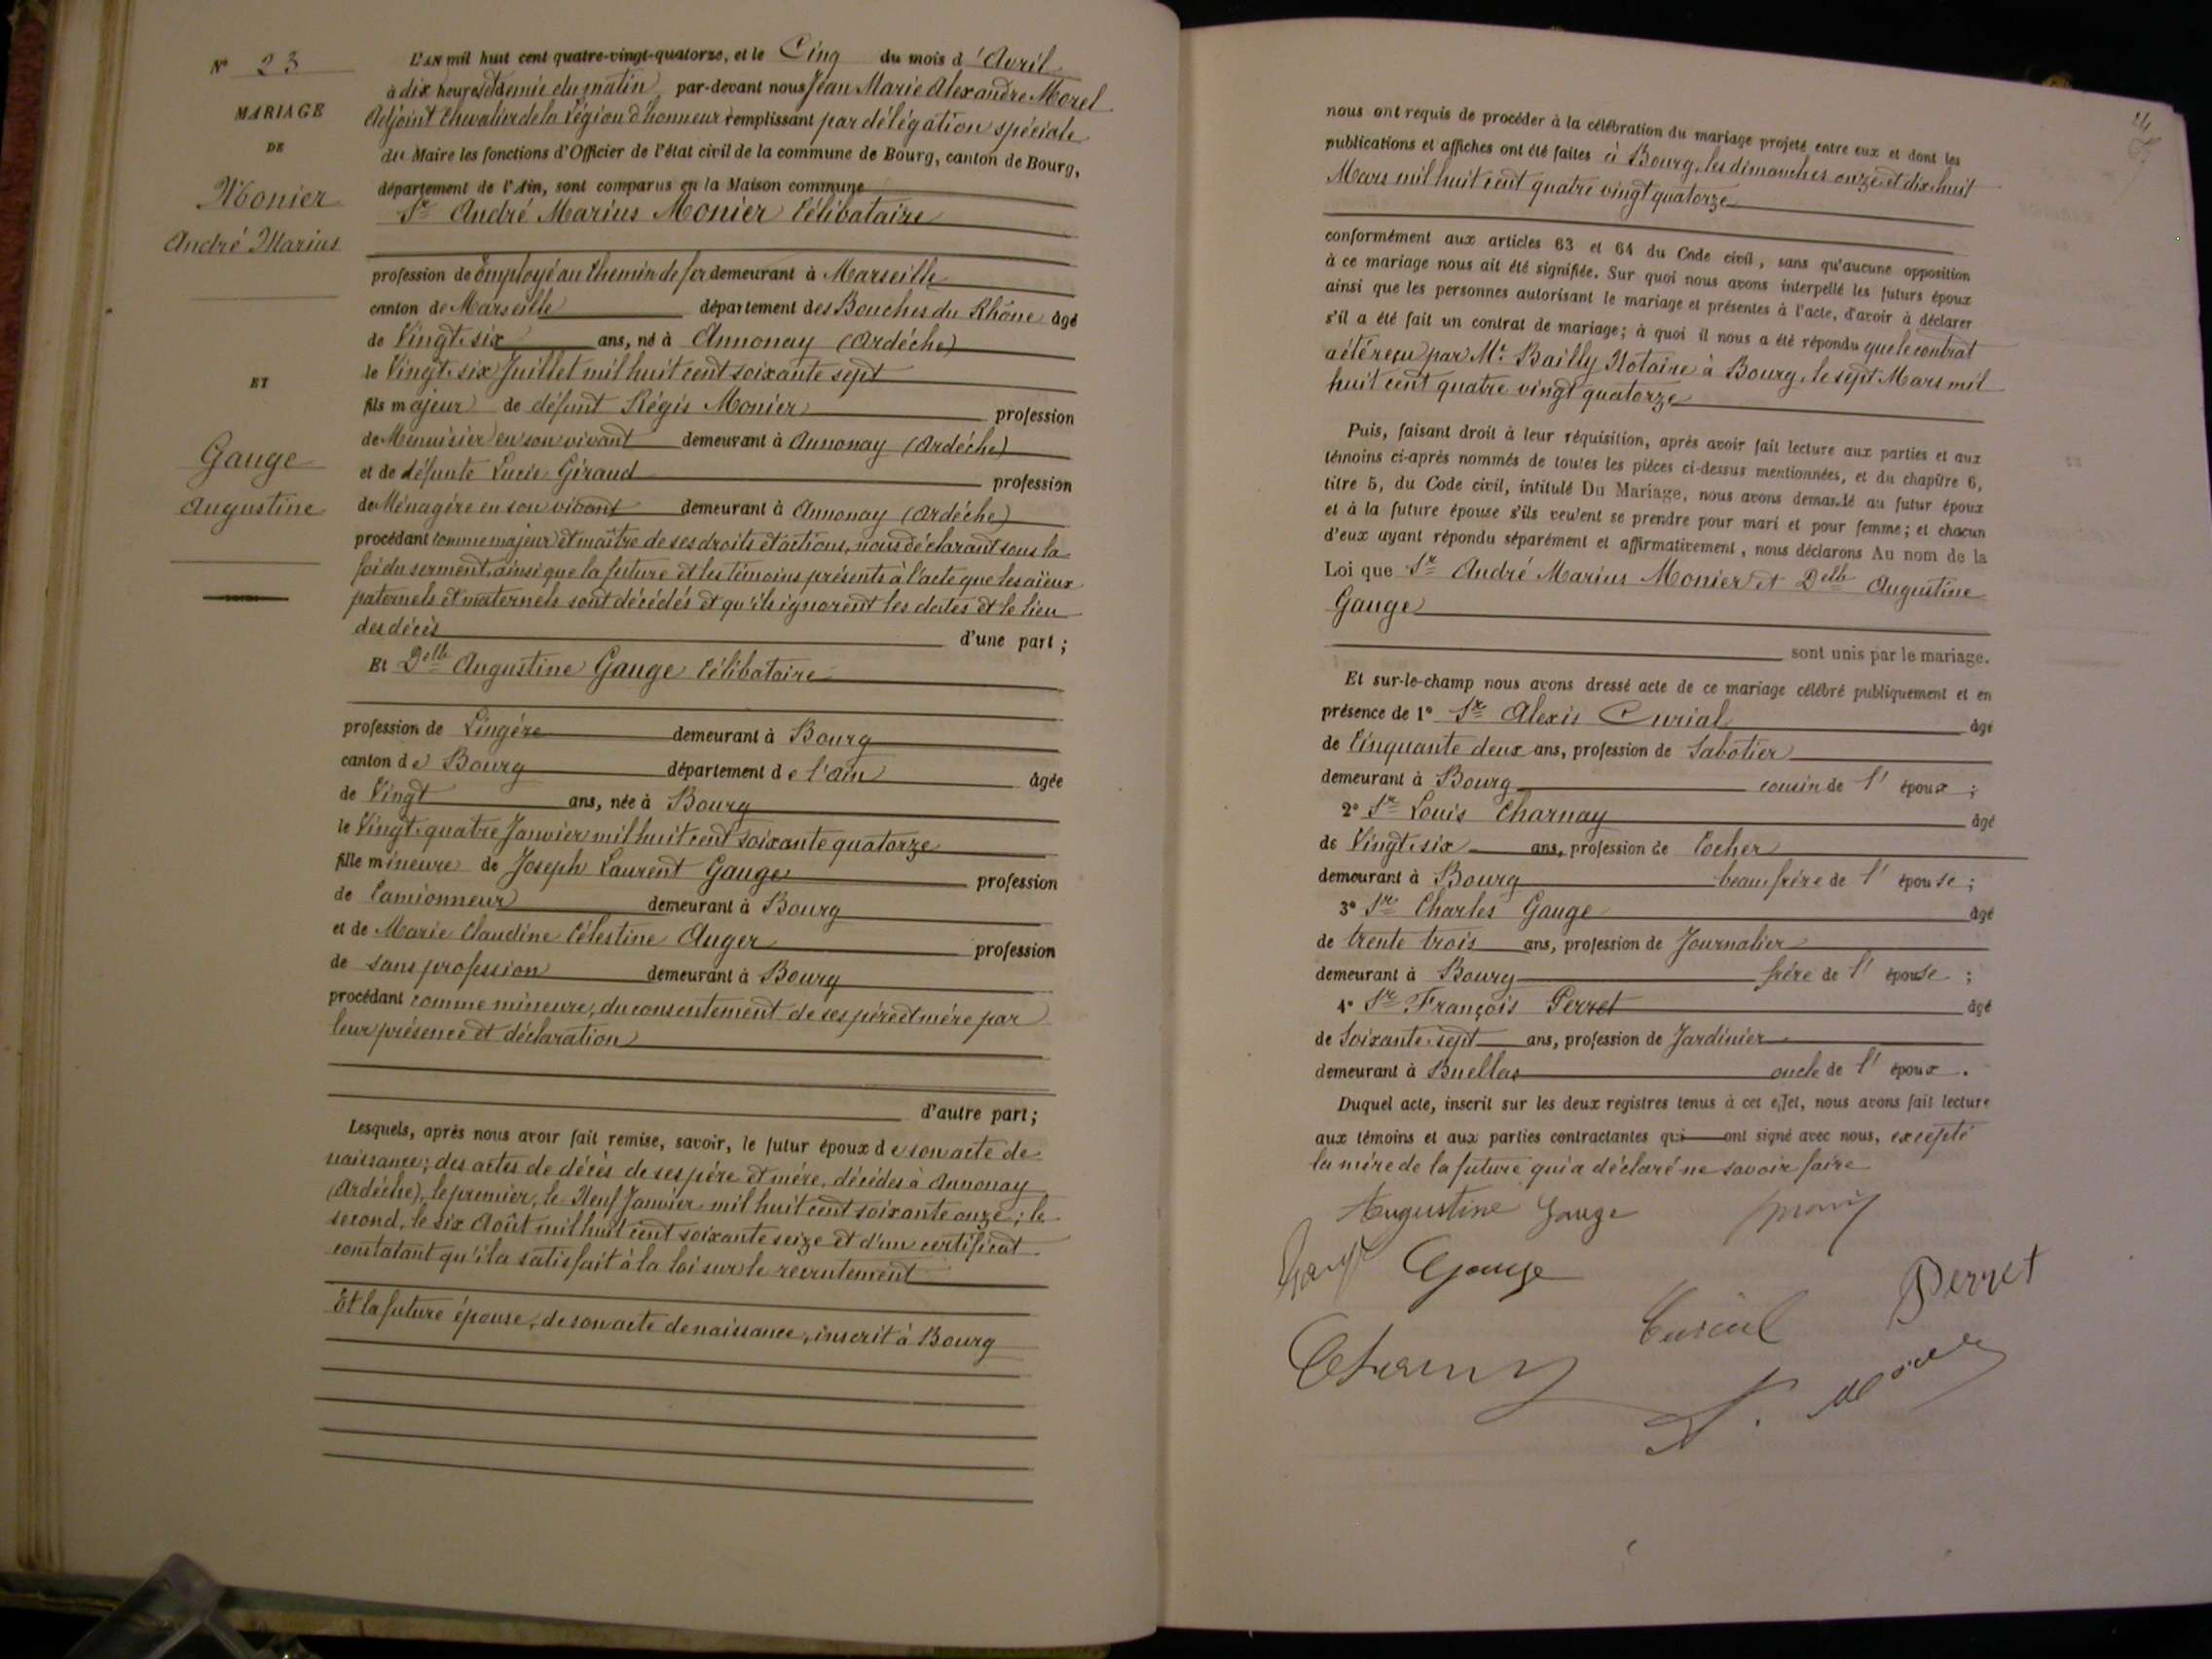 N° 23
MARIAGE
DE
Monier
André Marius
ET
Gauge
Augustine
L'AN mil huit cent quatre-vingt-quatorze, et le Cinq du mois d'Avril
à dix heures et demie du matin par-devant nous Jean Marie Alexandre Morel
Adjoint Chevalier de la Légion d'honneur remplissant par délégation spéciale
du Maire les fonctions d'Officier de l'état civil de la commune de Bourg, canton de Bourg,
département de l'Ain, sont comparus en la Maison commune
Sr André Marius Monier Célibataire
profession de Employé au Chemin de fer demeurant à Marseille
canton de Marseille département des Bouches du Rhône âgé
de Vingt-six ans, né à Annonay (Ardèche)
le Vingt-six Juillet mil huit cent soixante sept
fils majeur de défunt Régis Monier profession
de Menuisier en son vivant demeurant à Annonay (Ardèche)
et de défunte Lucie Giraud profession
de Ménagère en son vivant demeurant à Annonay (Ardèche)
procédant comme majeur et maître de ses droits et actions, nous déclarant sous la
foi du serment, ainsi que la future et les témoins présents à l'acte que les aïeux
paternels et maternels sont décédés et qu'ils ignorent les dates et le lieu
des décès d'une part ;
Et Delle Augustine Gauge Célibataire
profession de Lingère demeurant à Bourg
canton de Bourg département de l'Ain âgée
de Vingt ans, née à Bourg
le Vingt-quatre Janvier mil huit cent soixante quatorze
fille mineure de Joseph Laurent Gauge profession
de Camionneur demeurant à Bourg
et de Marie Claudine Célestine Auger profession
de sans profession demeurant à Bourg
procédant comme mineure, du consentement de ses père et mère par
leur présence et déclaration
d'autre part ;
Lesquels, après nous avoir fait remise, savoir, le futur époux de son acte de
naissance ; des actes de décès de ses père et mère, décédés à Annonay
(Ardèche), le premier, le Neuf Janvier mil huit cent soixante onze ; le
second, le six Août mil huit cent soixante seize et d'un certificat
constatant qu'il a satisfait à la loi sur le recrutement
Et la future épouse, de son acte de naissance, inscrit à Bourg
24
nous ont requis de procéder à la célébration du mariage projeté entre eux et dont les
publications et affiches ont été faites à Bourg, les dimanches onze et dix-huit
Mars mil huit cent quatre vingt quatorze
conformément aux articles 63 et 64 du Code civil, sans qu'aucune opposition
à ce mariage nous ait été signifiée. Sur quoi nous avons interpellé les futurs époux
ainsi que les personnes autorisant le mariage et présentes à l'acte, d'avoir à déclarer
s'il a été fait un contrat de mariage ; à quoi il nous a été répondu que le contrat
a été reçu par Me Bailly Notaire à Bourg, le sept Mars mil
huit cent quatre vingt quatorze
Puis, faisant droit à leur réquisition, après avoir fait lecture aux parties et aux
témoins ci-après nommés de toutes les pièces ci-dessus mentionnées, et du chapitre 6,
titre 5, du Code civil, intitulé Du Mariage, nous avons demandé au futur époux
et à la future épouse s'ils veulent se prendre pour mari et pour femme ; et chacun
d'eux ayant répondu séparément et affirmativement, nous déclarons Au nom de la
Loi que Sr André Marius Monier et Delle Augustine
Gauge
sont unis par le mariage.
Et sur-le-champ nous avons dressé acte de ce mariage célébré publiquement et en
présence de 1° Sr Alexis Curial âgé
de Cinquante deux ans, profession de Sabotier
demeurant à Bourg cousin de l'époux ;
2° Sr Louis Charnay âgé
de Vingt-six ans, profession de Cocher
demeurant à Bourg beau frère de l'épouse ;
3° Sr Charles Gauge âgé
de trente trois ans, profession de Journalier
demeurant à Bourg frère de l'épouse ;
4° Sr François Perret âgé
de Soixante-sept ans, profession de Jardinier
demeurant à Buellas oncle de l'époux.
Duquel acte, inscrit sur les deux registres tenus à cet effet, nous avons fait lecture
aux témoins et aux parties contractantes qui ont signé avec nous, excepté
la mère de la future qui a déclaré ne savoir faire
Augustine Gauge
Gauge Gauge
Perret
Curial